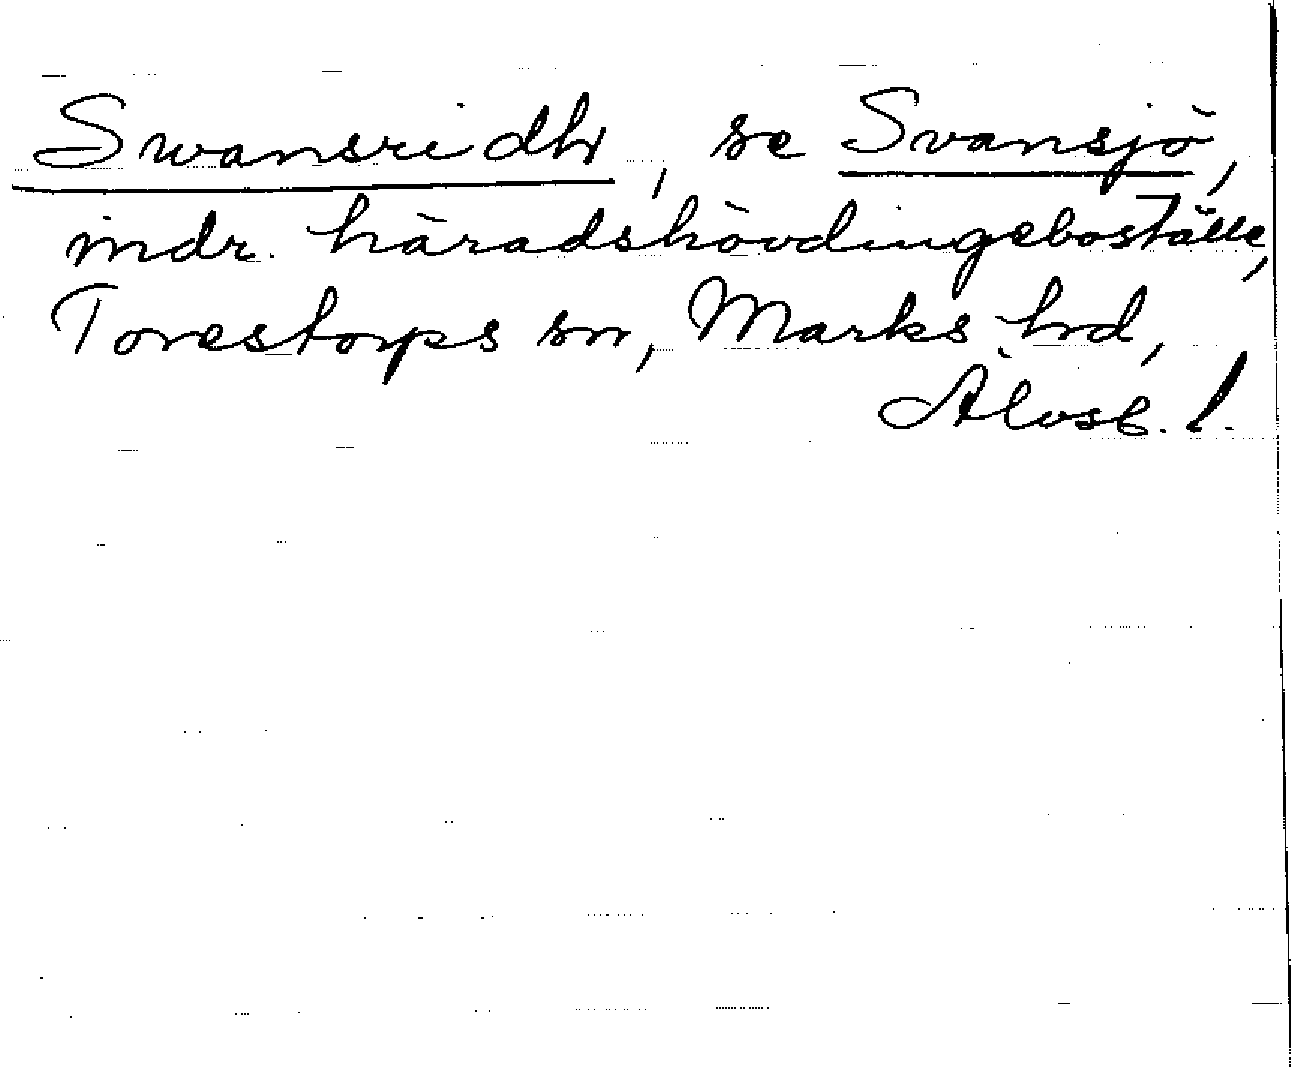 Swansridh, se Svansjö,
indr. häradshövdingeboställe,
Torestorps sn, Marks hd,
Älvsb. l.